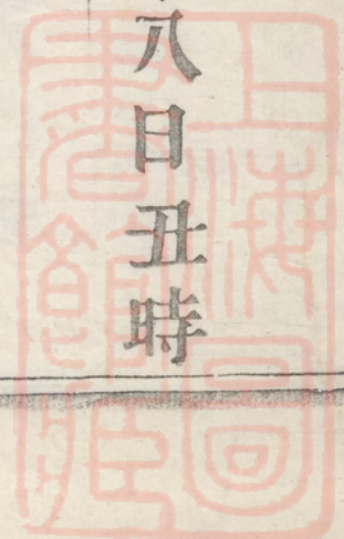 八日丑時
上海圖
書館藏